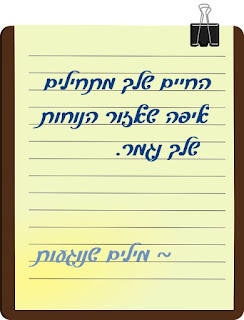 החיים שלב מתחילים
איפה שאזור הנוחות
שלב נגמר.
~ מילים שנוגעות